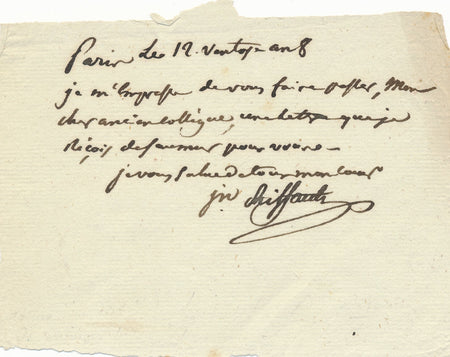 Paris Le 12 Ventose an 8
je m'Empresse de vous faire passer, Mon
cher ancien collègue, une lettre que je
Reçois de Saumur pour
je vous salue de tout mon cœur
jn